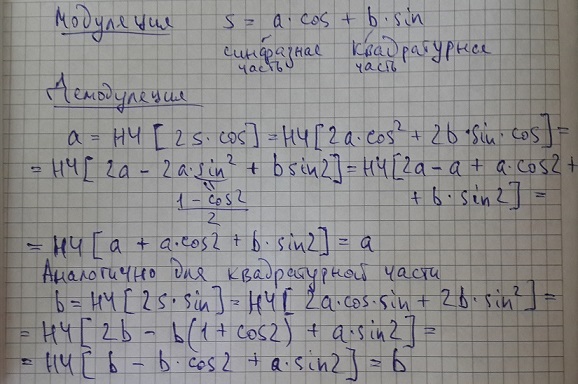 Модуляция s = a·cos + b·sin
синфазная часть квадратурная часть
Демодуляция
a = НЧ [2s·cos] = НЧ[2a·cos² + 2b·sin·cos] =
= НЧ[2a - 2a·sin² + b sin2] = НЧ[2a - a + a·cos2 +
1 - cos2 / 2 + b·sin2] =
= НЧ [a + a·cos2 + b·sin2] = a
Аналогично для квадратурной части
b = НЧ [2s·sin] = НЧ[2a·cos·sin + 2b·sin²] =
= НЧ [2b - b(1 + cos2) + a·sin2] =
= НЧ [b - b·cos2 + a·sin2] = b